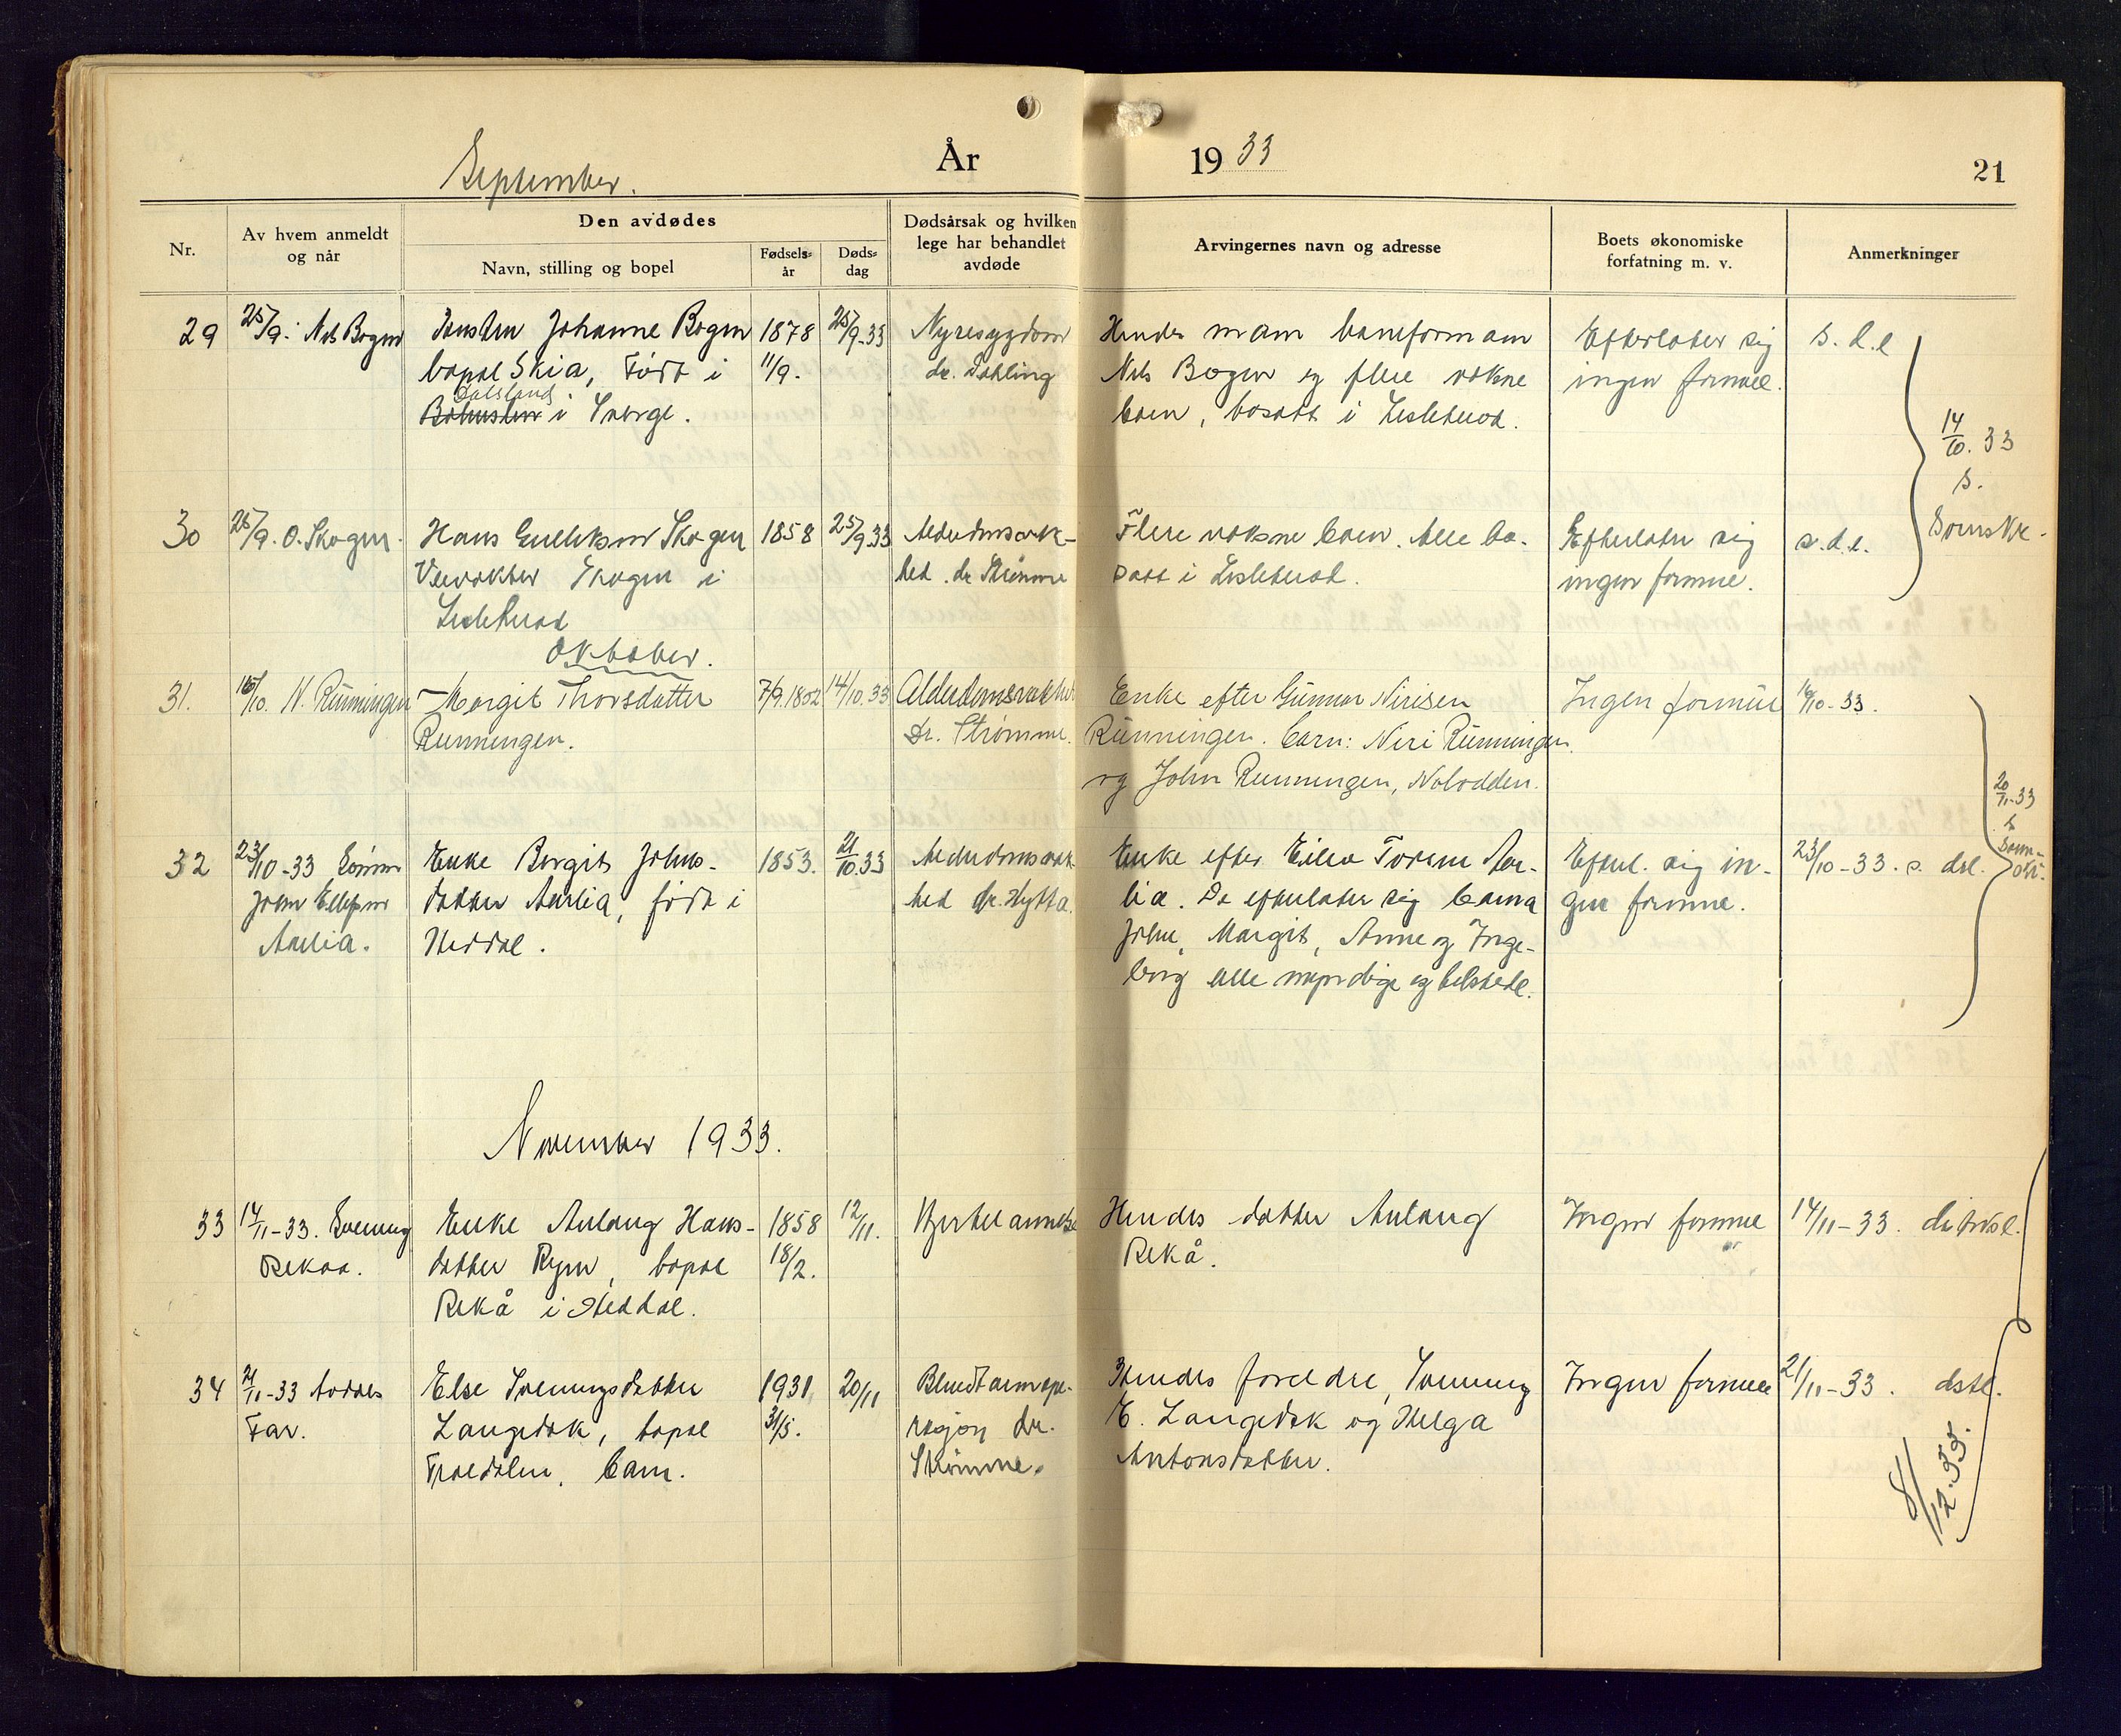 September.
År
19 33
21
Nr.
Av hvem anmeldt
og når
Den avdødes
Navn, stilling og bopel
Fødsels-
år
Døds-
dag
Dødsårsak og hvilken
lege har behandlet
avdøde
Arvingernes navn og adresse
Boets økonomiske
forfatning m. v.
Anmerkninger
29
25/9. Nils Bogen
Johanne Bogen
bopæl Skia, Født i
Dalsland
Bohuslen i Sverge.
1878
11/9.
25/9-33
Nyresygdom
dr. Dahling
Hendes mann baneformann
Nils Bogen og flere voksne
barn, bosatt i Lisleherad.
Efterlater sig
ingen formue.
s. d. l
14/10. 33
s.
30
25/9. O. Skogen.
Hans Gulleksen Skogen
Veivokter Skogen i
Lisleherad
1858
25/9 33
Alderdomssvak-
hed. dr Strømme
Flere voksne barn. Alle bo-
satt i Lisleherad.
Efterlater sig
ingen formue.
s. d. l.
Oktober.
31.
16/10. N. Rünningen
Margit Thorsdatter
Runningen.
7/9.1852
14/10.33
Alderdomssvakhet
Dr. Strømme.
Enke efter Günnar Nirisen
Rünningen. Barn: Niri Rünningen
og John Runningen, Notodden.
Ingen formüe
16/10-33.
20/11-33
s
32
23/10-33 Sønnen
John Ellefsen
Aarlia.
Enke Borgit Johns-
datter Aarlia, født i
Heddal.
1853.
21/10.33
Alderdomssvak-
hed dr. Hytta.
Enke efter Eilev Torsen Aar-
lia. De efterlater sig barna
John, Margit, Anne og Inge-
borg alle myndige og
Efterl. sig in-
gen formue.
23/10-33. s. dsl.
November 1933.
33
14/11-33. Svenung
Rekaa.
Enke Aslaug Hans-
datter Rym, bopæl
Rekå i Heddal.
1858
18/2.
12/11.
Hjertelammelse
Hendes datter Aslaug
Rekå.
Ingen formue
14/11-33.
34
21/11-33 Avdødes
Far.
Else Svenungsdatter
Langedok, bopæl
Trædalen. Barn.
1931
31/5.
20/11
Blindtarmope-
rasjon dr.
Strømme.
Hendes foreldre, Svenung
E. Langedok og Helga
Antonsdatter.
Ingen formue
21/11-33. dsl.
8/12.33.